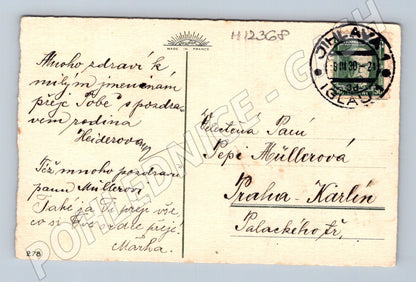 MADE IN FRANCE
H12368
JIHLAVA 1
8 III 38
IGLAU 1
Mnoho zdraví k
milým jmeninám
přeje Tobě s pozdra-
vem rodina
Heiderova
Též mnoho pozdravů
panu Müllerovi
Také já Ti přeji vše,
co si sama přeješ!
Mařka.
Velectěná Paní
Pepi Müllerová
Praha-Karlín
Palackého tř.
278
POHLEDNICE - GACH